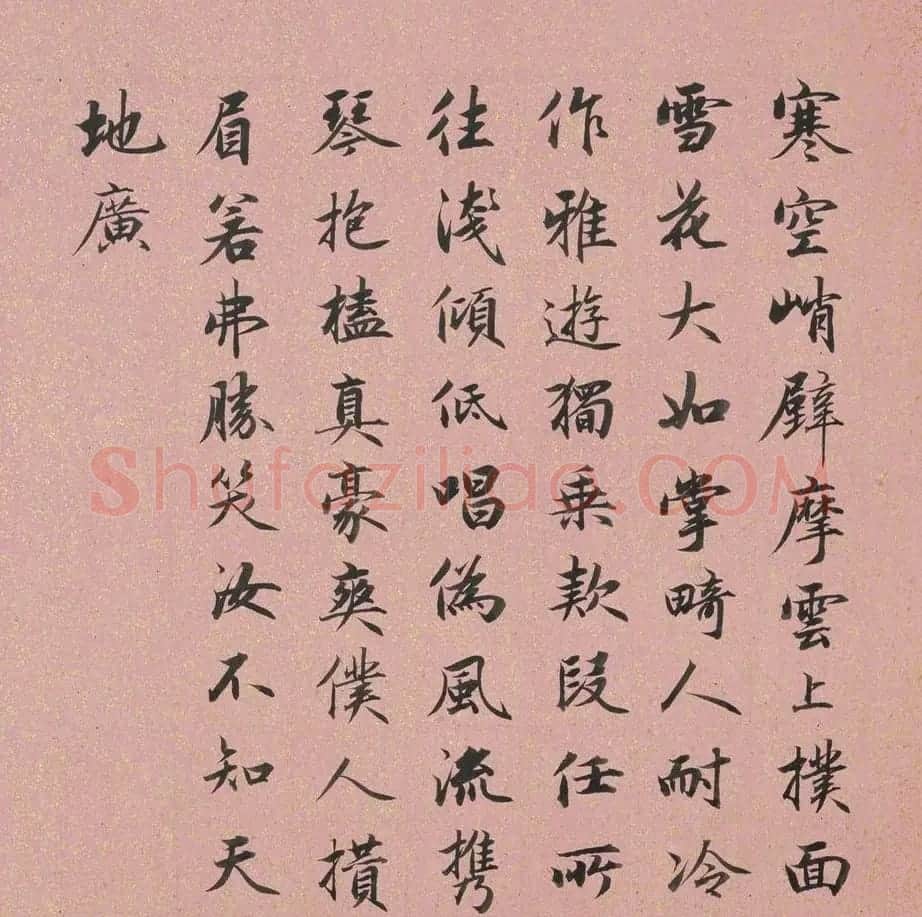 寒空峭壁摩雲上撲面
雪花大如掌畸人耐冷
作雅遊獨乘款段任所
往淺傾低唱偽風流携
琴抱榼真豪爽僕人攢
眉若弗勝笑汝不知天
地廣
Shufaziliao.COM